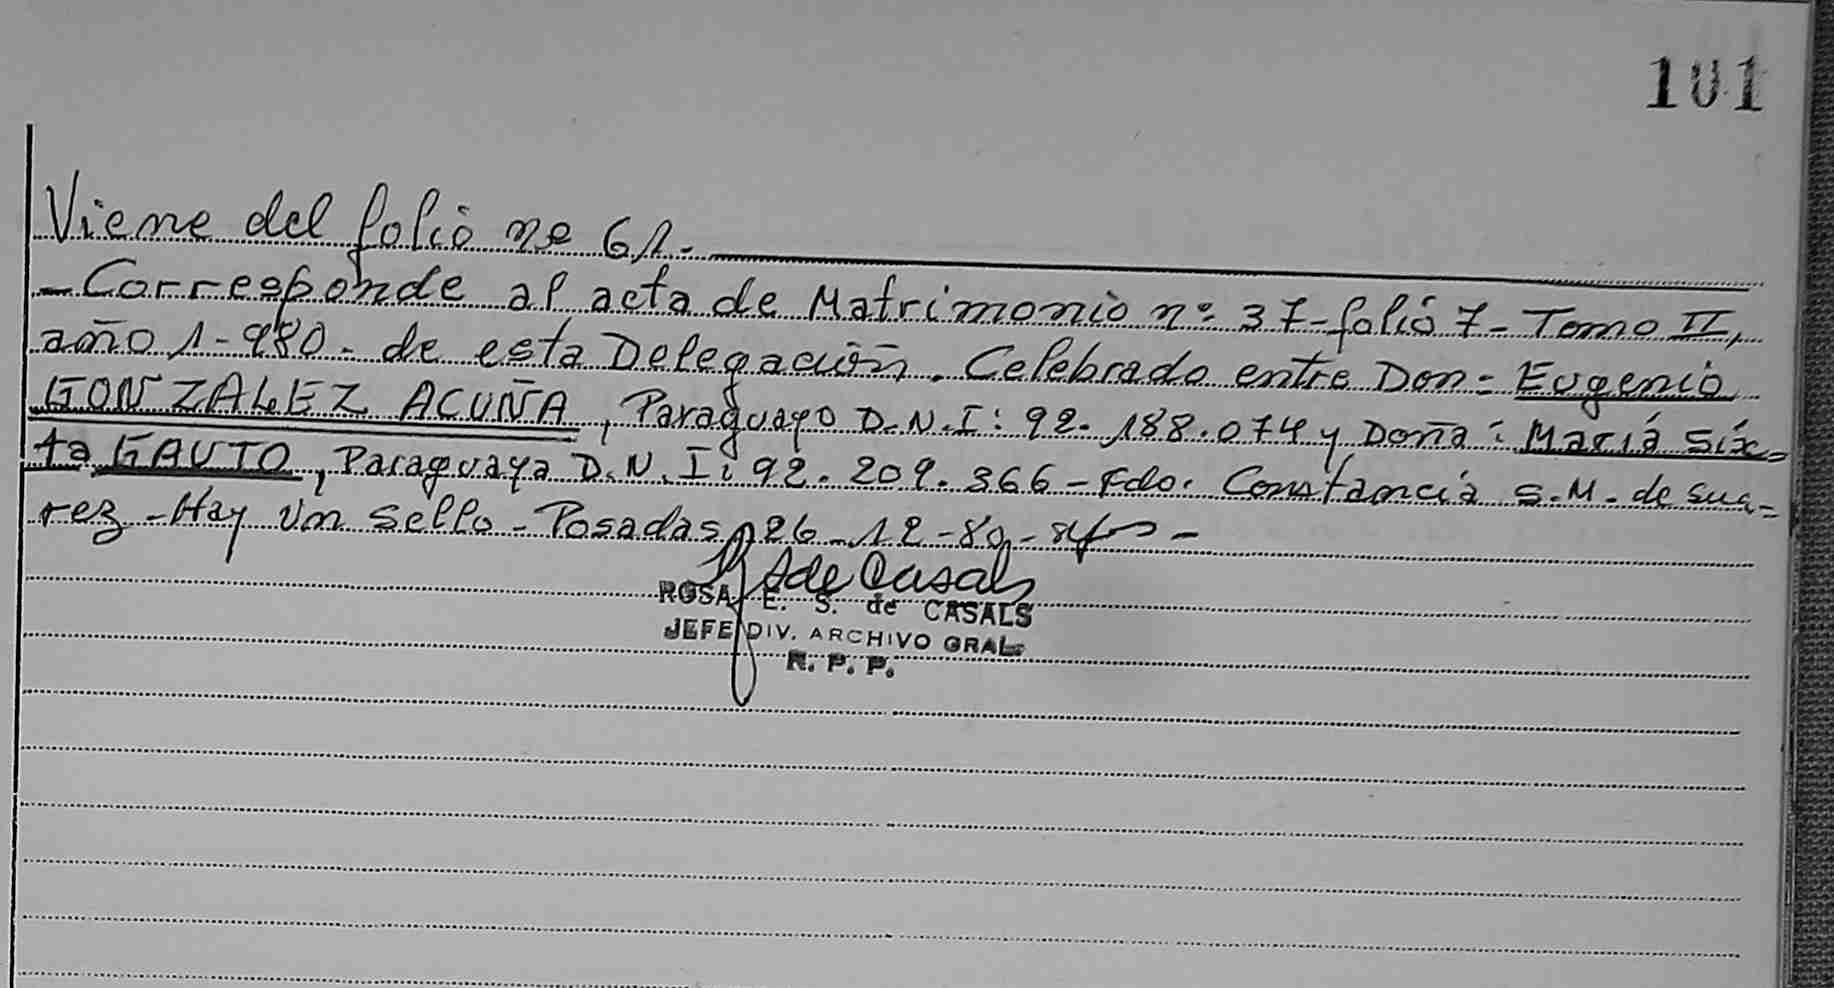 101
Viene del folio no 61.-
-Corresponde al acta de Matrimonio nº 37-folio 7- Tomo II,
año 1-980- de esta Delegación. Celebrado entre Don: Eugenio
GONZALEZ ACUÑA, Paraguayo D.N.I: 92.188.074 y Doña: María Six=
ta GAUTO, Paraguaya D.N.I: 92.209.366-Fdo. Constancia S.M. de Sua=
rez -Hay Un Sello-Posadas, 26-12-80-
SdeCasals
ROSA E. S. de CASALS
JEFE DIV. ARCHIVO GRAL.
R. P. P.